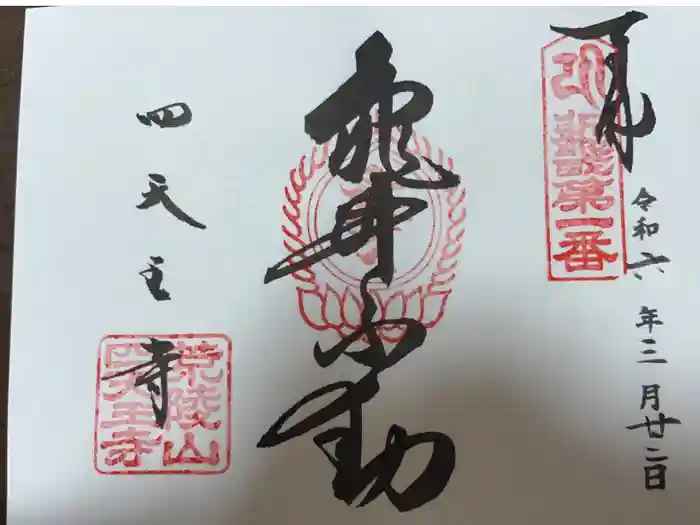 奉拝
新西国第一番
令和六年三月廿二日
亀井不動
四天王寺
荒陵山
四天王寺